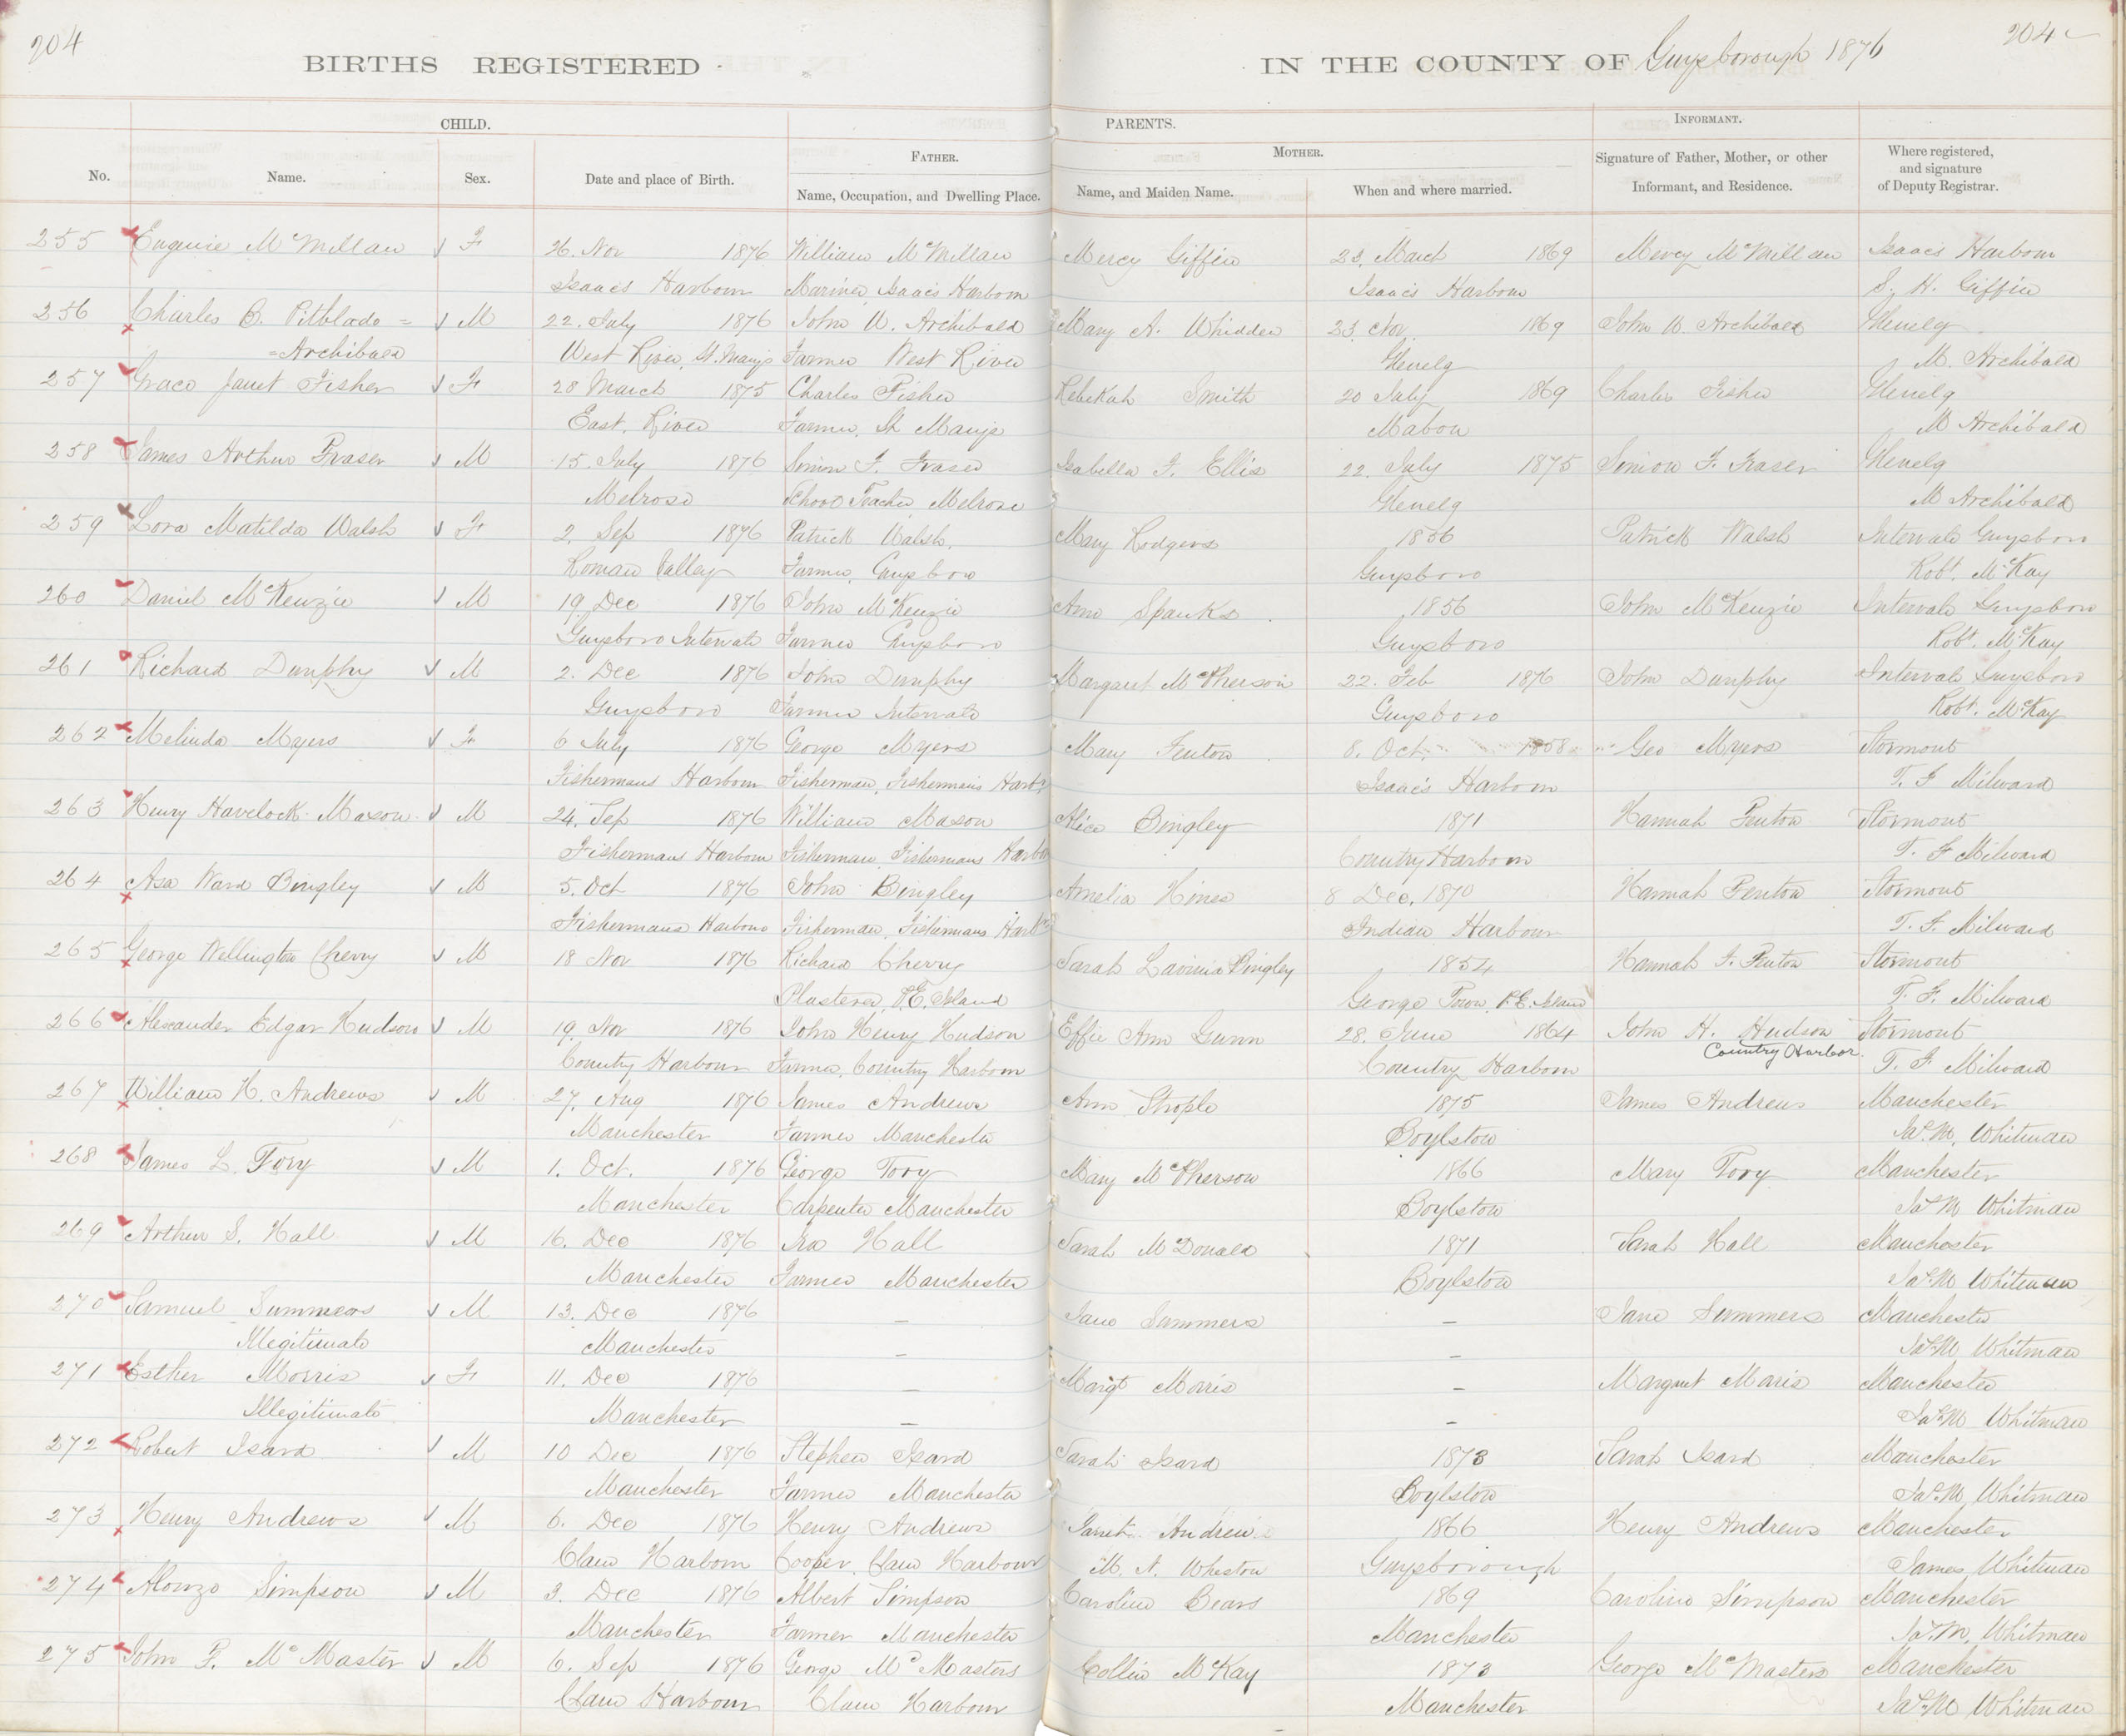 204
204
BIRTHS REGISTERED
IN THE COUNTY OF Guysborough 1876
CHILD.
PARENTS.
INFORMANT.
FATHER.
MOTHER.
No.
Name.
Sex.
Date and place of Birth.
Name, Occupation, and Dwelling Place.
Name, and Maiden Name.
When and where married.
Signature of Father, Mother, or other
Informant, and Residence.
Where registered,
and signature
of Deputy Registrar.
255 Eugenie McMillan F 26. Nov 1876 William McMillan Mercy Giffin 23. March 1869 Mercy McMillan Isaacs Harbour
Isaacs Harbour Mariner, Isaacs Harbour Isaacs Harbour S. H. Giffin
256 Charles B. Pitblado = M 22. July 1876 John W. Archibald Mary A. Whidden 23. Nov. 1869 John W. Archibald Glenelg
=Archibald West River, St. Marys Farmer West River Glenelg M. Archibald
257 Grace Janet Fisher F 28 March 1875 Charles Fisher Rebekah Smith 20 July 1869 Charles Fisher Glenelg
East. River Farmer, St Marys Mabou M Archibald
258 James Arthur Fraser M 15. July 1876 Simon F. Fraser Isabella F. Ellis 22. July 1875 Simon F. Fraser Glenelg
Melrose School Teacher, Melrose Glenelg M Archibald
259 Lora Matilda Walsh F 2. Sep 1876 Patrick Walsh. Mary Rodgers 1856 Patrick Walsh Intervale Guysboro
Roman Valley Farmer, Guysboro Guysboro Robt. McKay
260 Daniel McKenzie M 19. Dec 1876 John McKenzie Ann Spanks 1856 John McKenzie Intervale Guysboro
Guysboro Intervale Farmer Guysboro Guysboro Robt. McKay
261 Richard Dunphy M 2. Dec 1876 John Dunphy Margaret McPherson 22. Feb 1876 John Dunphy Intervale Guysboro
Guysboro Farmer Intervale Guysboro Robt. McKay
262 Melinda Myers F 6 July 1876 George Myers Mary Fenton 8. Oct. 1858 Geo Myers Stormont
Fishermans Harbour Fisherman, Fishermans Harbr Isaac's Harbour T. F Milward
263 Henry Havelock Mason M 24. Sep 1876 William Mason Alice Bingley 1871 Hannah Fenton Stormont
Fishermans Harbour Fisherman, Fishermans Harbr Country Harbour T. F Milward
264 Asa Ward Bingley M 5. Oct 1876 John Bingley Amelia Hines 8 Dec. 1870 Hannah Fenton Stormont
Fishermans Harbour Fisherman, Fishermans Harbr Indian Harbour T. F. Milward
265 George Wellington Cherry M 18 Nov 1876 Richard Cherry Sarah Lavinia Bingley 1854 Hannah F. Fenton Stormont
Plasterer, P.E. Island George Town, P.E. Island T. F. Milward
266 Alexander Edgar Hudson M 19. Nov 1876 John Henry Hudson Effie Ann Gunn 28. June 1864 John H. Hudson Stormont
Country Harbour Farmer, Country Harbour Country Harbour Country Harbor. T. F Milward
267 William H. Andrews M 27. Aug 1876 James Andrews Ann Strople 1875 James Andrews Manchester
Manchester Farmer Manchester Boylston Jas. M. Whitman
268 James L. Tory M 1. Oct. 1876 George Tory Mary McPherson 1866 Mary Tory Manchester
Manchester Carpenter Manchester Boylston Jas. M Whitman
269 Arthur S. Hall M 16. Dec 1876 Ira Hall Sarah McDonald 1871 Sarah Hall Manchester
Manchester Farmer Manchester Boylston Jas. M Whitman
270 Samuel Summers M 13. Dec 1876 — Jane Summers — Jane Summers Manchester
Illegitimate Manchester — — Jas. M Whitman
271 Esther Morris F 11. Dec 1876 — Margt Morris — Margaret Maris Manchester
Illegitimate Manchester — — Jas. M Whitman
272 Robert Isard M 10 Dec 1876 Stephen Isard Sarah Isard 1873 Sarah Isard Manchester
Manchester Farmer Manchester Boylston Jas. M. Whitman
273 Henry Andrews M 6. Dec 1876 Henry Andrews Janet Andrew 1866 Henry Andrews Manchester
Clam Harbour Cooper, Clam Harbour M. A. Wheston Guysborough James Whitman
274 Alonzo Simpson M 3. Dec 1876 Albert Simpson Caroline Bears 1869 Caroline Simpson Manchester
Manchester Farmer Manchester Manchester Jas. M. Whitman
275 John F. McMaster M 6. Sep 1876 George McMasters Collin McKay 1873 George McMasters Manchester
Clam Harbour Clam Harbour Manchester Jas. M Whitman